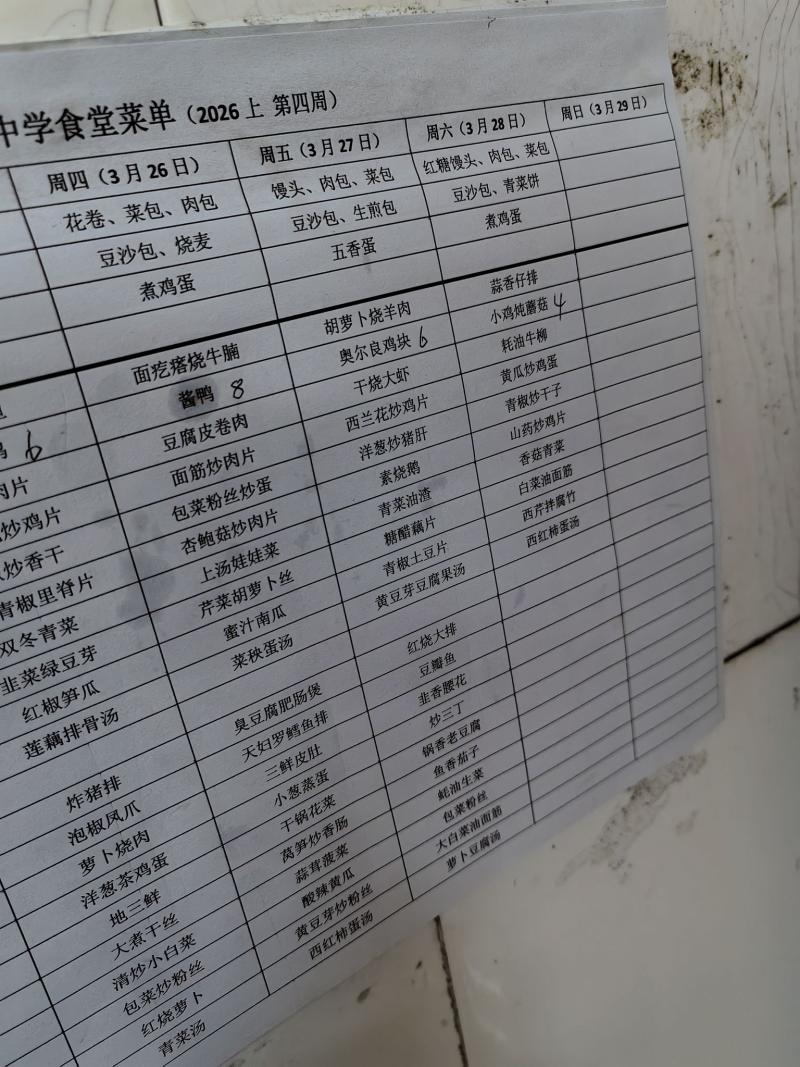 中学食堂菜单（2026 上 第四周）
肉片
炒鸡片
炒香干
青椒里脊片
双冬青菜
韭菜绿豆芽
红椒笋瓜
莲藕排骨汤
炸猪排
泡椒凤爪
萝卜烧肉
洋葱茶鸡蛋
地三鲜
大煮干丝
清炒小白菜
包菜炒粉丝
红烧萝卜
青菜汤
周四（3 月 26 日）
花卷、菜包、肉包
豆沙包、烧麦
煮鸡蛋
面疙瘩烧牛腩
酱鸭 8
豆腐皮卷肉
面筋炒肉片
包菜粉丝炒蛋
杏鲍菇炒肉片
上汤娃娃菜
芹菜胡萝卜丝
蜜汁南瓜
菜秧蛋汤
臭豆腐肥肠煲
天妇罗鳕鱼排
三鲜皮肚
小葱蒸蛋
干锅花菜
莴笋炒香肠
蒜茸菠菜
酸辣黄瓜
黄豆芽炒粉丝
西红柿蛋汤
周五（3 月 27 日）
馒头、肉包、菜包
豆沙包、生煎包
五香蛋
胡萝卜烧羊肉
奥尔良鸡块 6
干烧大虾
西兰花炒鸡片
洋葱炒猪肝
素烧鹅
青菜油渣
糖醋藕片
青椒土豆片
黄豆芽豆腐果汤
红烧大排
豆瓣鱼
韭香腰花
炒三丁
锅香老豆腐
鱼香茄子
蚝油生菜
包菜粉丝
大白菜油面筋
萝卜豆腐汤
周六（3 月 28 日）
红糖馒头、肉包、菜包
豆沙包、青菜饼
煮鸡蛋
蒜香仔排
小鸡炖蘑菇 4
耗油牛柳
黄瓜炒鸡蛋
青椒炒干子
山药炒鸡片
香菇青菜
白菜油面筋
西芹拌腐竹
西红柿蛋汤
周日（3 月 29 日）